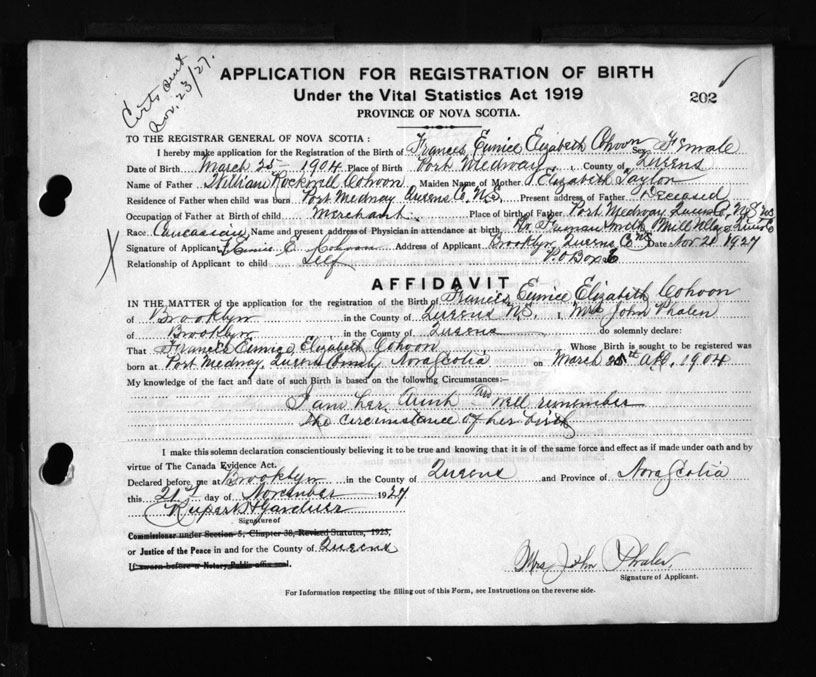 Certs sent
Nov. 23/27.
APPLICATION FOR REGISTRATION OF BIRTH
Under the Vital Statistics Act 1919
202
PROVINCE OF NOVA SCOTIA.
TO THE REGISTRAR GENERAL OF NOVA SCOTIA:
I hereby make application for the Registration of the Birth of Francis Eunice Elizabeth Cohoon Sex Female
Date of Birth March 25 - 1904 Place of Birth Port Medway, County of Queens
Name of Father William Rockwell Cohoon Maiden Name of Mother Elizabeth Taylor
Residence of Father when child was born Port Medway Queens Co. N.S. Present address of Father Deceased
Occupation of Father at Birth of child Merchant Place of birth of Father Port Medway Queens Co, N.S
Race Caucasian Name and present address of Physician in attendance at birth Dr. Freeman Smith Mill Village Queens Co
Signature of Applicant F. Eunice E. Cohoon Address of Applicant Brooklyn Queens Co N.S Date Nov 21 1927
Relationship of Applicant to child Self P.O Box 6
AFFIDAVIT
IN THE MATTER of the application for the registration of the Birth of Francis Eunice Elizabeth Cohoon
of Brooklyn in the County of Queens N.S. I, Mrs John Phalen
of Brooklyn in the County of Queens do solemnly declare:
That Francis Eunice Elizabeth Cohoon Whose Birth is sought to be registered was
born at Port Medway, Queens County Nova Scotia on March 25th A.D. 1904
My knowledge of the fact and date of such Birth is based on the following Circumstances:—
I am her Aunt well remember
the circumstance of her birth
I make this solemn declaration conscientiously believing it to be true and knowing that it is of the same force and effect as if made under oath and by
virtue of The Canada Evidence Act.
Declared before me at Brooklyn in the County of Queens and Province of Nova Scotia
this 21st day of November 1927
Rupert H Gardner
Signature of
Commissioner under Section 5, Chapter 38, Revised Statutes, 1923,
or Justice of the Peace in and for the County of Queens
If sworn before a Notary Public affix seal.
Mrs John Phalen
Signature of Applicant.
For Information respecting the filling out of this Form, see Instructions on the reverse side.